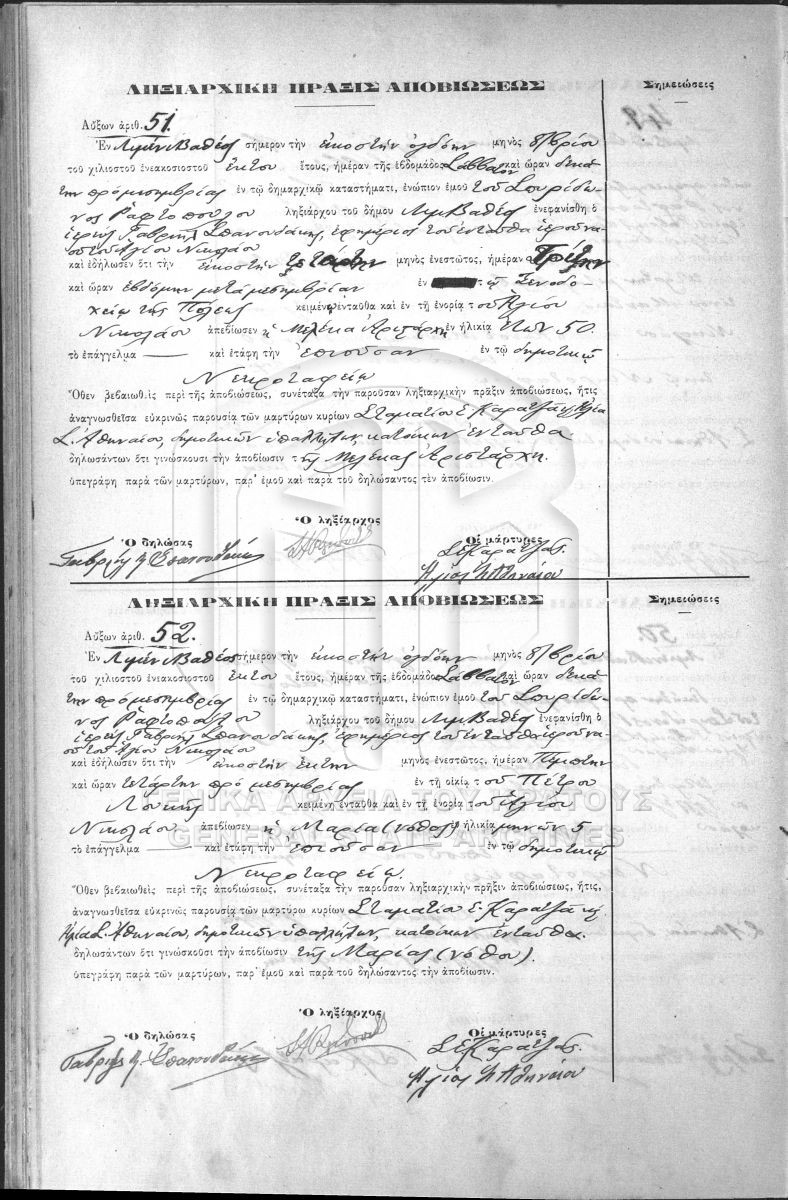 ΛΗΞΙΑΡΧΙΚΗ ΠΡΑΞΙΣ ΑΠΟΒΙΩΣΕΩΣ
Σημειώσεις
Αὔξων ἀριθ. 51.
Ἐν Λιμὴν Βαθέος σήμερον τὴν εἰκοστὴν ὀγδόην μηνὸς 8/βρίου
τοῦ χιλιοστοῦ ἐνεακοσιοστοῦ ἕκτου ἔτους, ἡμέραν τῆς ἑβδομάδος Σάββατον καὶ ὥραν δεκά-
την πρὸ μεσημβρίας ἐν τῷ δημαρχικῷ καταστήματι, ἐνώπιον ἐμοῦ τοῦ Σπυρίδω-
νος Ῥαφτοπούλου ληξιάρχου τοῦ δήμου Λιμ. Βαθέος ἐνεφανίσθη ὁ
ἱερεὺς Γαβριὴλ Σπανουδάκης, ἐφημέριος τοῦ ἐνταῦθα ἱεροῦ να-
οῦ τοῦ Ἁγίου Νικολάου
καὶ ἐδήλωσεν ὅτι τὴν εἰκοστὴν τετάρτην μηνὸς ἐνεστῶτος, ἡμέραν Τρίτην
καὶ ὥραν ἑβδόμην μετὰ μεσημβρίαν ἐν τῷ Ξενοδο-
χείῳ τῆς Πόλεως κειμένῳ ἐνταῦθα καὶ ἐν τῇ ἐνορίᾳ τοῦ Ἁγίου
Νικολάου ἀπεβίωσεν ἡ Μελέκα Ἀριστάρχη ἐν ἡλικίᾳ ἐτῶν 50.
τὸ ἐπάγγελμα — καὶ ἐτάφη τὴν ἐπιοῦσαν ἐν τῷ δημοτικῷ
Νεκροταφείῳ.
Ὅθεν βεβαιωθεὶς περὶ τῆς ἀποβιώσεως, συνέταξα τὴν παροῦσαν ληξιαρχικὴν πρᾶξιν ἀποβιώσεως, ἥτις
ἀναγνωσθεῖσα εὐκρινῶς παρουσίᾳ τῶν μαρτύρων κυρίων Σταματίου Ε. Καρατζᾶ κ Ἠλία
Σ. Ἀθηναίου, δημοτικῶν ὑπαλλήλων, κατοίκων ἐνταῦθα
δηλωσάντων ὅτι γινώσκουσι τὴν ἀποβίωσιν τῆς Μελέκας Ἀριστάρχη.
ὑπεγράφη παρὰ τῶν μαρτύρων, παρ' ἐμοῦ καὶ παρὰ τοῦ δηλώσαντος τὴν ἀποβίωσιν.
Ὁ δηλώσας
Ὁ ληξίαρχος
Οἱ μάρτυρες
Σ. Ε. Καρατζᾶς.
Ἠλίας Σ. Ἀθηναίου
ΛΗΞΙΑΡΧΙΚΗ ΠΡΑΞΙΣ ΑΠΟΒΙΩΣΕΩΣ
Σημειώσεις
Αὔξων ἀριθ. 52.
Ἐν Λιμὴν Βαθέος σήμερον τὴν εἰκοστὴν ὀγδόην μηνὸς 8/βρίου
τοῦ χιλιοστοῦ ἐνεακοσιοστοῦ ἕκτου ἔτους, ἡμέραν τῆς ἑβδομάδος Σάββατον καὶ ὥραν δεκά-
την πρὸ μεσημβρίας ἐν τῷ δημαρχικῷ καταστήματι, ἐνώπιον ἐμοῦ τοῦ Σπυρίδω-
νος Ῥαφτοπούλου ληξιάρχου τοῦ δήμου Λιμ. Βαθέος ἐνεφανίσθη ὁ
ἱερεὺς Γαβριὴλ Σπανουδάκης, ἐφημέριος τοῦ ἐνταῦθα ἱεροῦ να-
οῦ τοῦ Ἁγίου Νικολάου
καὶ ἐδήλωσεν ὅτι τὴν εἰκοστὴν ἕκτην μηνὸς ἐνεστῶτος, ἡμέραν Πέμπτην
καὶ ὥραν τετάρτην πρὸ μεσημβρίας ἐν τῇ οἰκίᾳ τοῦ Πέτρου
Λουκῆ κειμένῃ ἐνταῦθα καὶ ἐν τῇ ἐνορίᾳ τοῦ Ἁγίου
Νικολάου ἀπεβίωσεν ἡ Μαρία (νόθος) ἐν ἡλικίᾳ μηνῶν 5
τὸ ἐπάγγελμα — καὶ ἐτάφη τὴν ἐπιοῦσαν ἐν τῷ δημοτικῷ
Νεκροταφείῳ.
Ὅθεν βεβαιωθεὶς περὶ τῆς ἀποβιώσεως, συνέταξα τὴν παροῦσαν ληξιαρχικὴν πρᾶξιν ἀποβιώσεως, ἥτις,
ἀναγνωσθεῖσα εὐκρινῶς παρουσίᾳ τῶν μαρτύρω κυρίων Σταματίου Ε. Καρατζᾶ κ
Ἠλία Σ. Ἀθηναίου, δημοτικῶν ὑπαλλήλων, κατοίκων ἐνταῦθα.
δηλωσάντων ὅτι γινώσκουσι τὴν ἀποβίωσιν τῆς Μαρίας (νόθου).
ὑπεγράφη παρὰ τῶν μαρτύρων, παρ' ἐμοῦ καὶ παρὰ τοῦ δηλώσαντος τὴν ἀποβίωσιν.
Ὁ δηλώσας
Ὁ ληξίαρχος
Οἱ μάρτυρες
Σ. Ε. Καρατζᾶς.
Ἠλίας Σ. Ἀθηναίου
ΓΕΝΙΚΑ ΑΡΧΕΙΑ ΤΟΥ ΚΡΑΤΟΥΣ
GENERAL STATE ARCHIVES